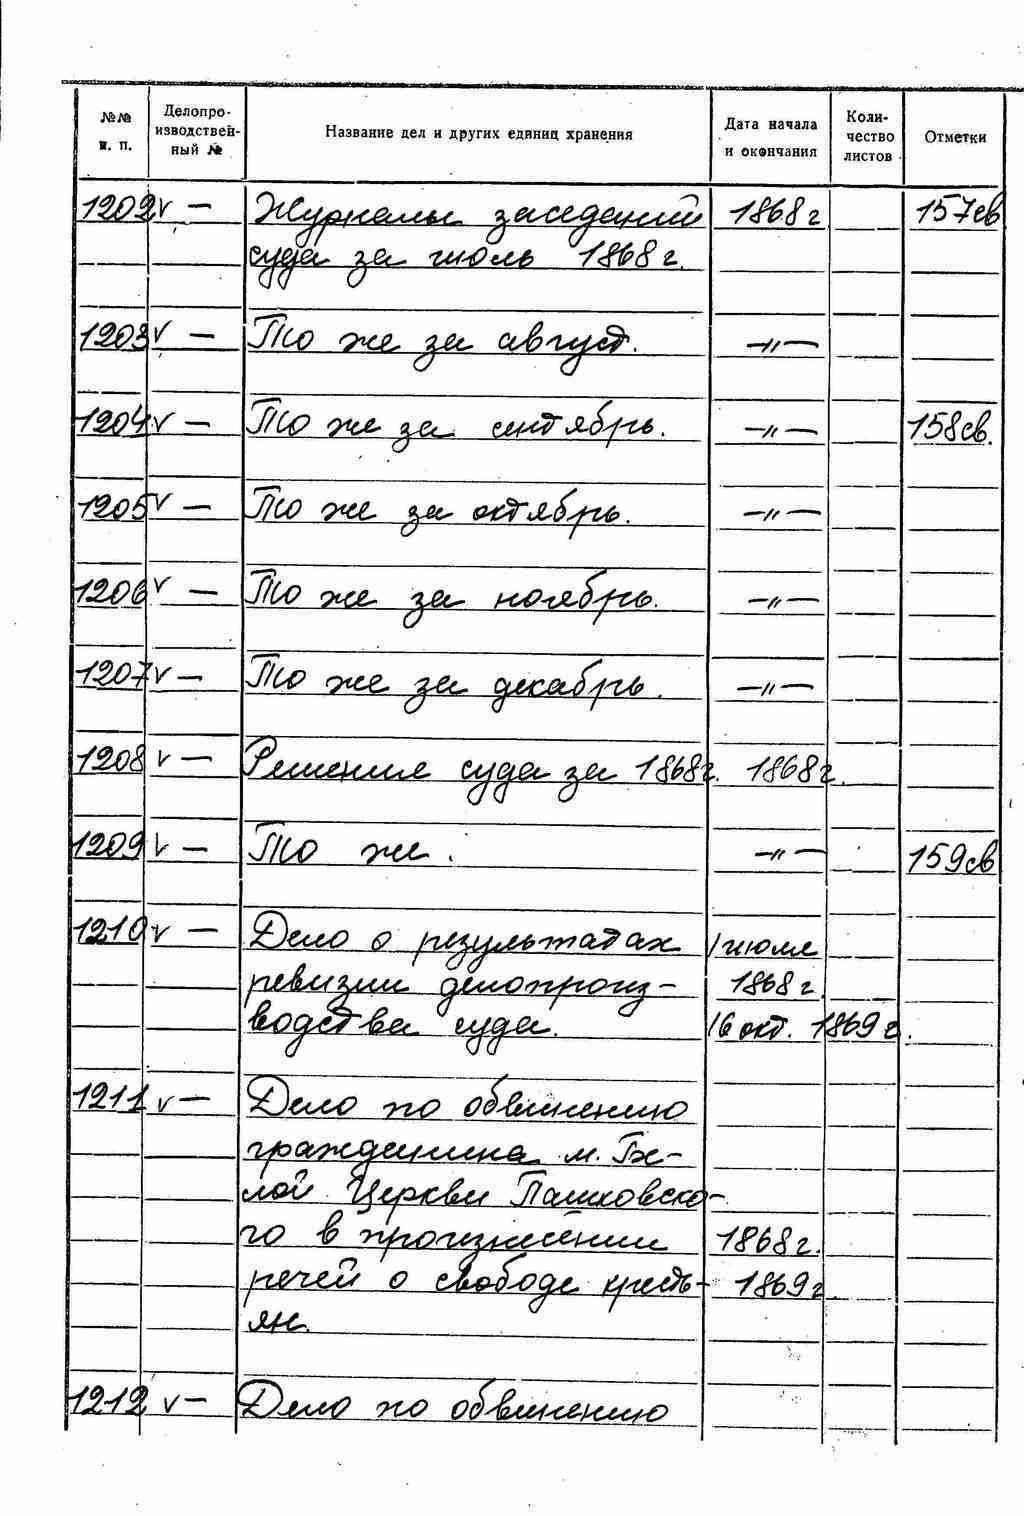 №№ п. п. Делопроизводствен-ный № Название дел и других единиц хранения Дата начала и окончания Коли-чество листов Отметки
1202 v — Журналы заседаний 1868 г 157св
суда за июль 1868 г.
1203 v — То же за август. —"—
1204 v — То же за сентябрь. —"— 158св.
1205 v — То же за октябрь. —"—
1206 v — То же за ноябрь. —"—
1207 v — То же за декабрь. —"—
1208 v — Решения суда за 1868г. 1868г.
1209 v — То же. —"— 159св
1210 v — Дело о результатах 1 июля
ревизии делопроиз- 1868 г.
водства суда. 16 окт. 1869 г.
1211 v — Дело по обвинению
гражданина м. Бе-
лой Церкви Пашковско-
го в произнесении 1868г.
речей о свободе кресть- 1869г
ян.
1212 v — Дело по обвинению